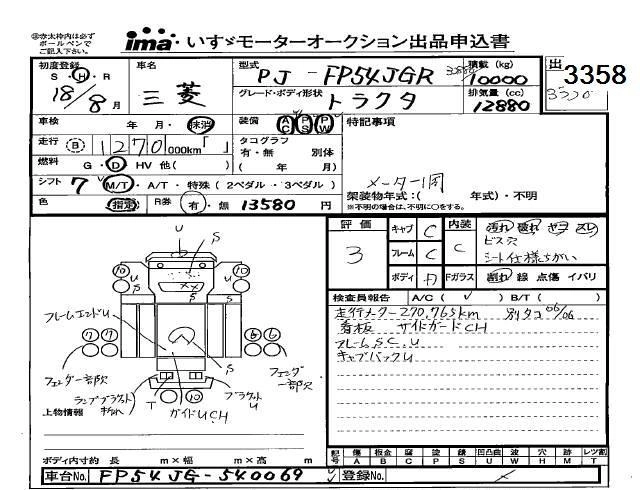 ※赤太枠内は必ずボールペンでご記入下さい。
ima・いすゞモーターオークション出品申込書
初度登録 S・H・R 18/8月
車名 三菱
型式 PJ-FP54JGR
積載(kg) 10000
出 3358
グレード・ボディ形状 トラクタ
排気量(cc) 12880
車検 年・月・抹消
装備 AC PS PW
特記事項
走行 B 1270,000km「」
タコグラフ 有・無 別体 (年 月)
燃料 G・D・HV 他( )
シフト 7 M/T・A/T・特殊(2ペダル・3ペダル)
メーター1周
架装物年式:( 年式)・不明
※不明の場合は、不明に○をする。
色 (指定) R券 有・無 13580円
評価 3
キャブ C
フレーム C
ボディ A
内装 C
汚れ 破れ ヤコ スレ
ビス穴
シート仕様ちがい
Fガラス 割れ 線 点傷 イバリ
検査員報告 A/C( ✓ ) B/T( )
走行メーター270,765km 別タコ 06/06
看板 サイドガードCH
フレームSC,U
キャブバックU
U
S
10 U
10 U
S
S
フレームエンドU
S
7 7
8 6
フェンダー一部欠
ランプブラケット折れ
T 10
ブラケットU
ガイドU,CH
フェンダー一部欠
上物情報
ボディ内寸約 長 m×幅 m×高 m
記号 傷 A 板金 B 腐 C 塗 P 錆 S 凹凸曲 U 波 W 穴 H 跡 M レツ割 T
車台No. FP54JG-540069
登録No.